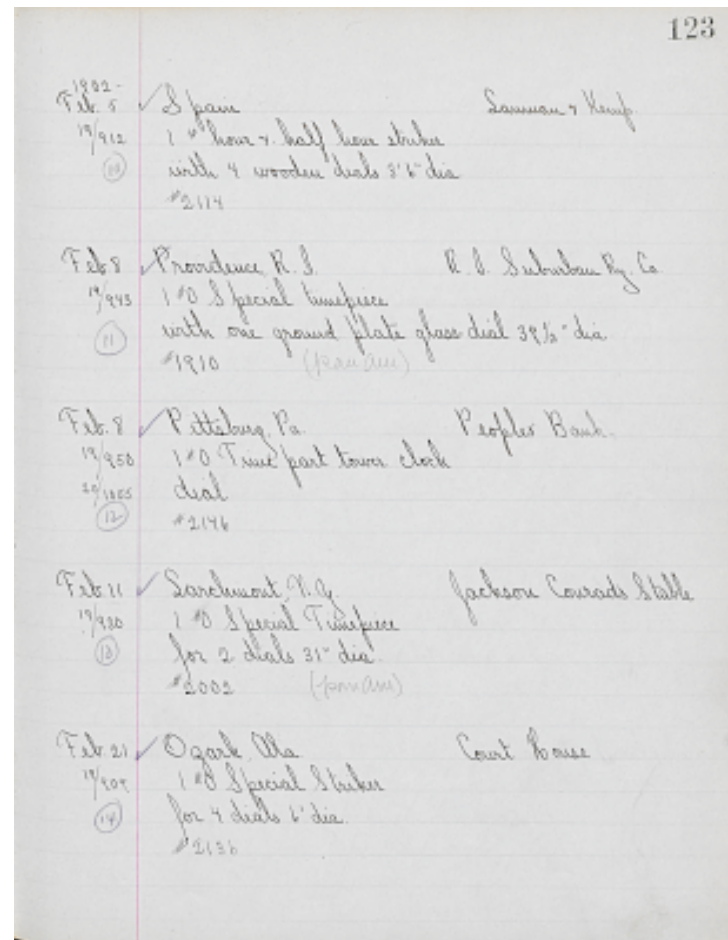 123
1902-
Feb. 5 ✓ Spain Lanman & Kemp
19/912 1 hour & half hour striker
10 with 4 wooden dials 3'6" dia
#2174
Feb 8 ✓ Providence, R. I. R. I. Suburban Ry. Co
19/943 1 #0 Special timepiece
11 with one ground plate glass dial 39½" dia
#1910 (pan Am)
Feb. 8 ✓ Pittsburg, Pa. Peoples Bank.
19/950 1 #0 Time part tower clock
20/1055 dial
12 #2146
Feb 11 ✓ Larchmont, N. Y. Jackson Conrads Stable
19/930 1 #0 Special Timepiece
13 for 2 dials 31" dia.
#2002 (pan Am)
Feb. 21 ✓ Ozark, Ala Court House
19/909 1 #0 Special Striker
14 for 4 dials 6' dia.
#2136